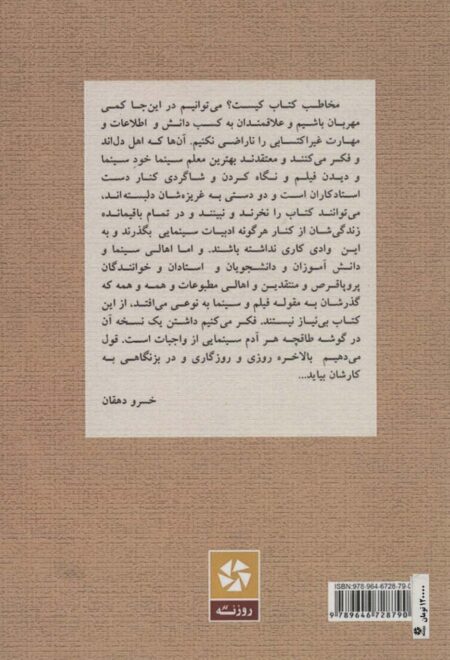 مخاطب کتاب کیست؟ می‌توانیم در این‌جا کمی
مهربان باشیم و علاقمندان به کسب دانش و اطلاعات و
مهارت غیراکتسابی را ناراضی نکنیم. آن‌ها که اهل دل‌اند
و فکر می‌کنند و معتقدند بهترین معلم سینما خودِ سینما
و دیدن فیلم و نگاه کردن و شاگردی کنار دست
استادکاران است و دو دستی به غریزه‌شان دلبسته‌اند،
می‌توانند کتاب را نخرند و نبینند و در تمام باقیمانده
زندگی‌شان از کنار هرگونه ادبیات سینمایی بگذرند و به
این وادی کاری نداشته باشند. و اما اهالی سینما و
دانش آموزان و دانشجویان و استادان و خوانندگان
پروپاقرص و منتقدین و اهالی مطبوعات و همه و همه که
گذرشان به مقوله فیلم و سینما به نوعی می‌افتد، از این
کتاب بی‌نیاز نیستند. فکر می‌کنیم داشتن یک نسخه آن
در گوشه طاقچه هر آدم سینمایی از واجبات است. قول
می‌دهیم بالاخره روزی و روزگاری و در بزنگاهی به
کارشان بیاید...
خسرو دهقان
روزنه
ISBN: 978-964-6728-79-
9 789646 728790
۱۲۰۰۰۰ تومان